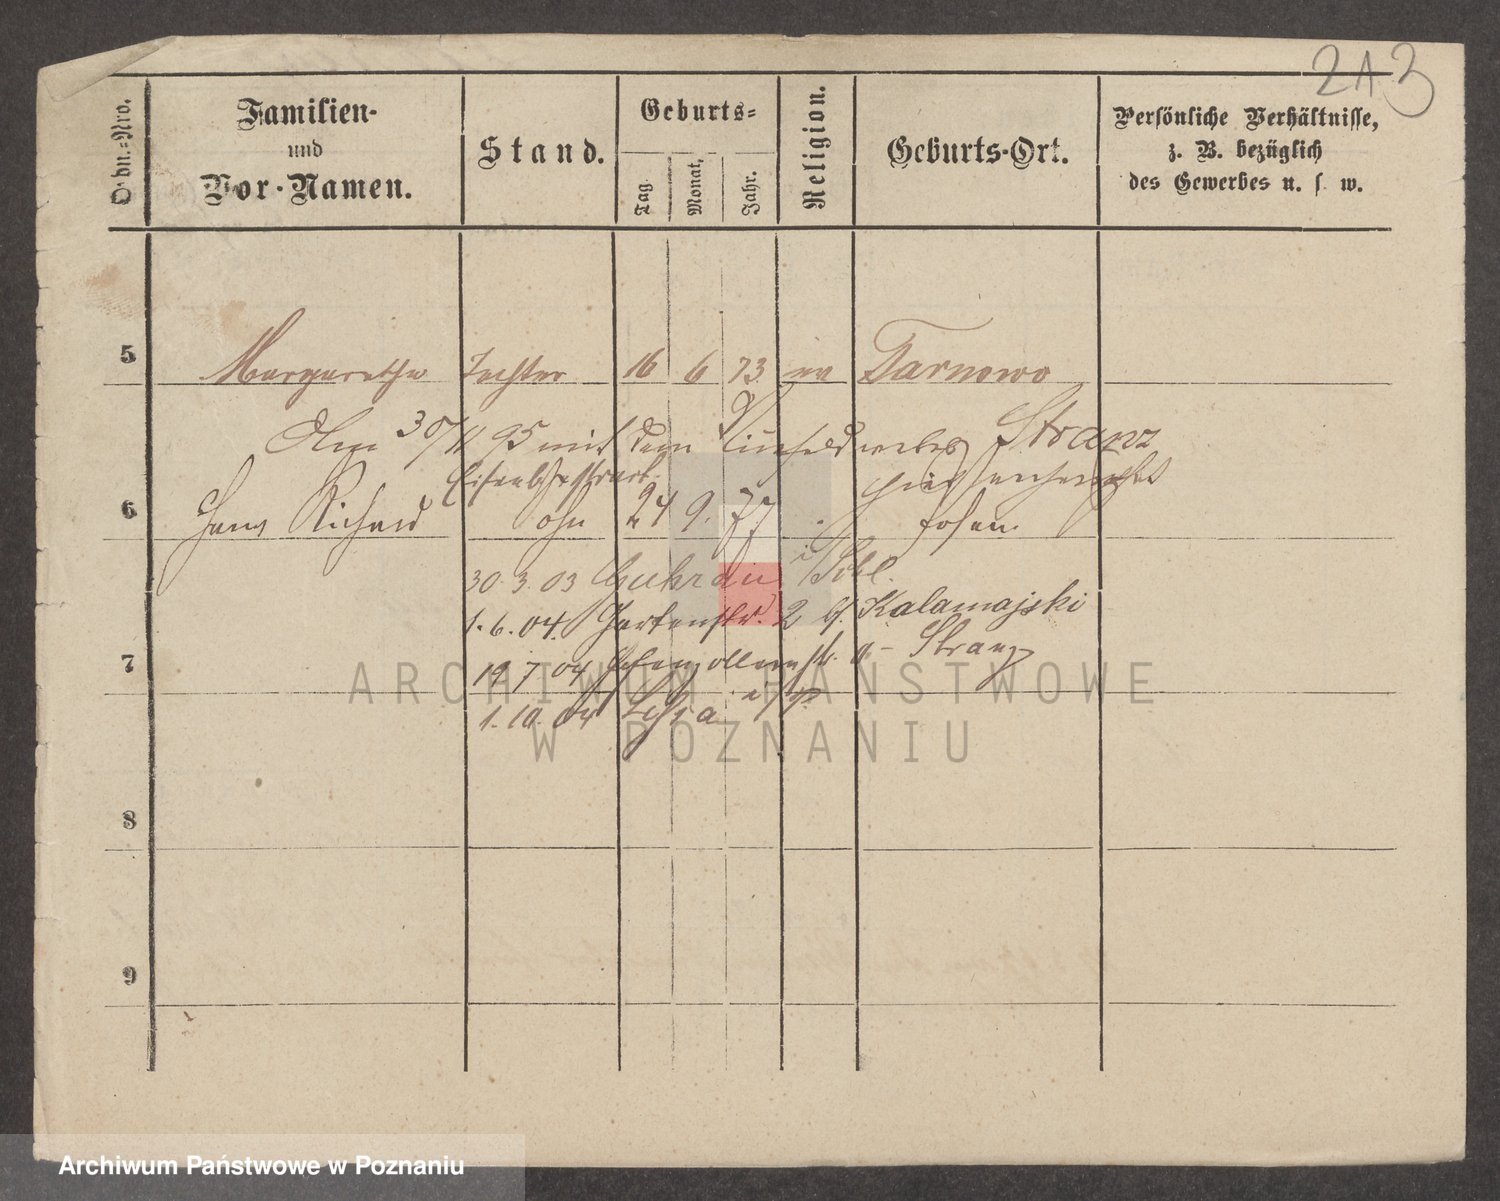 2A3
Ordn.-Nro.
Familien-
und
Vor-Namen.
Stand.
Geburts-
Tag.
Monat.
Jahr.
Religion.
Geburts-Ort.
Persönliche Verhältnisse,
z. B. bezüglich
des Gewerbes u. s. w.
5 Margarethe Tochter 16 6 73 ev Tarnowo
Am 30/11 95 mit dem Vicefeldwebel Stranz
6 Hans Richard Sohn 24 9. 77 Posen.
30. 3. 03 Guhrau i/Schl.
1. 6. 04. Gartenstr. 2 b/ Kalamajski
7
19. 7 04 Hohenzollernstr. Stranz
1. 10. 04
8
9
ARCHIWUM PAŃSTWOWE
W POZNANIU
Archiwum Państwowe w Poznaniu